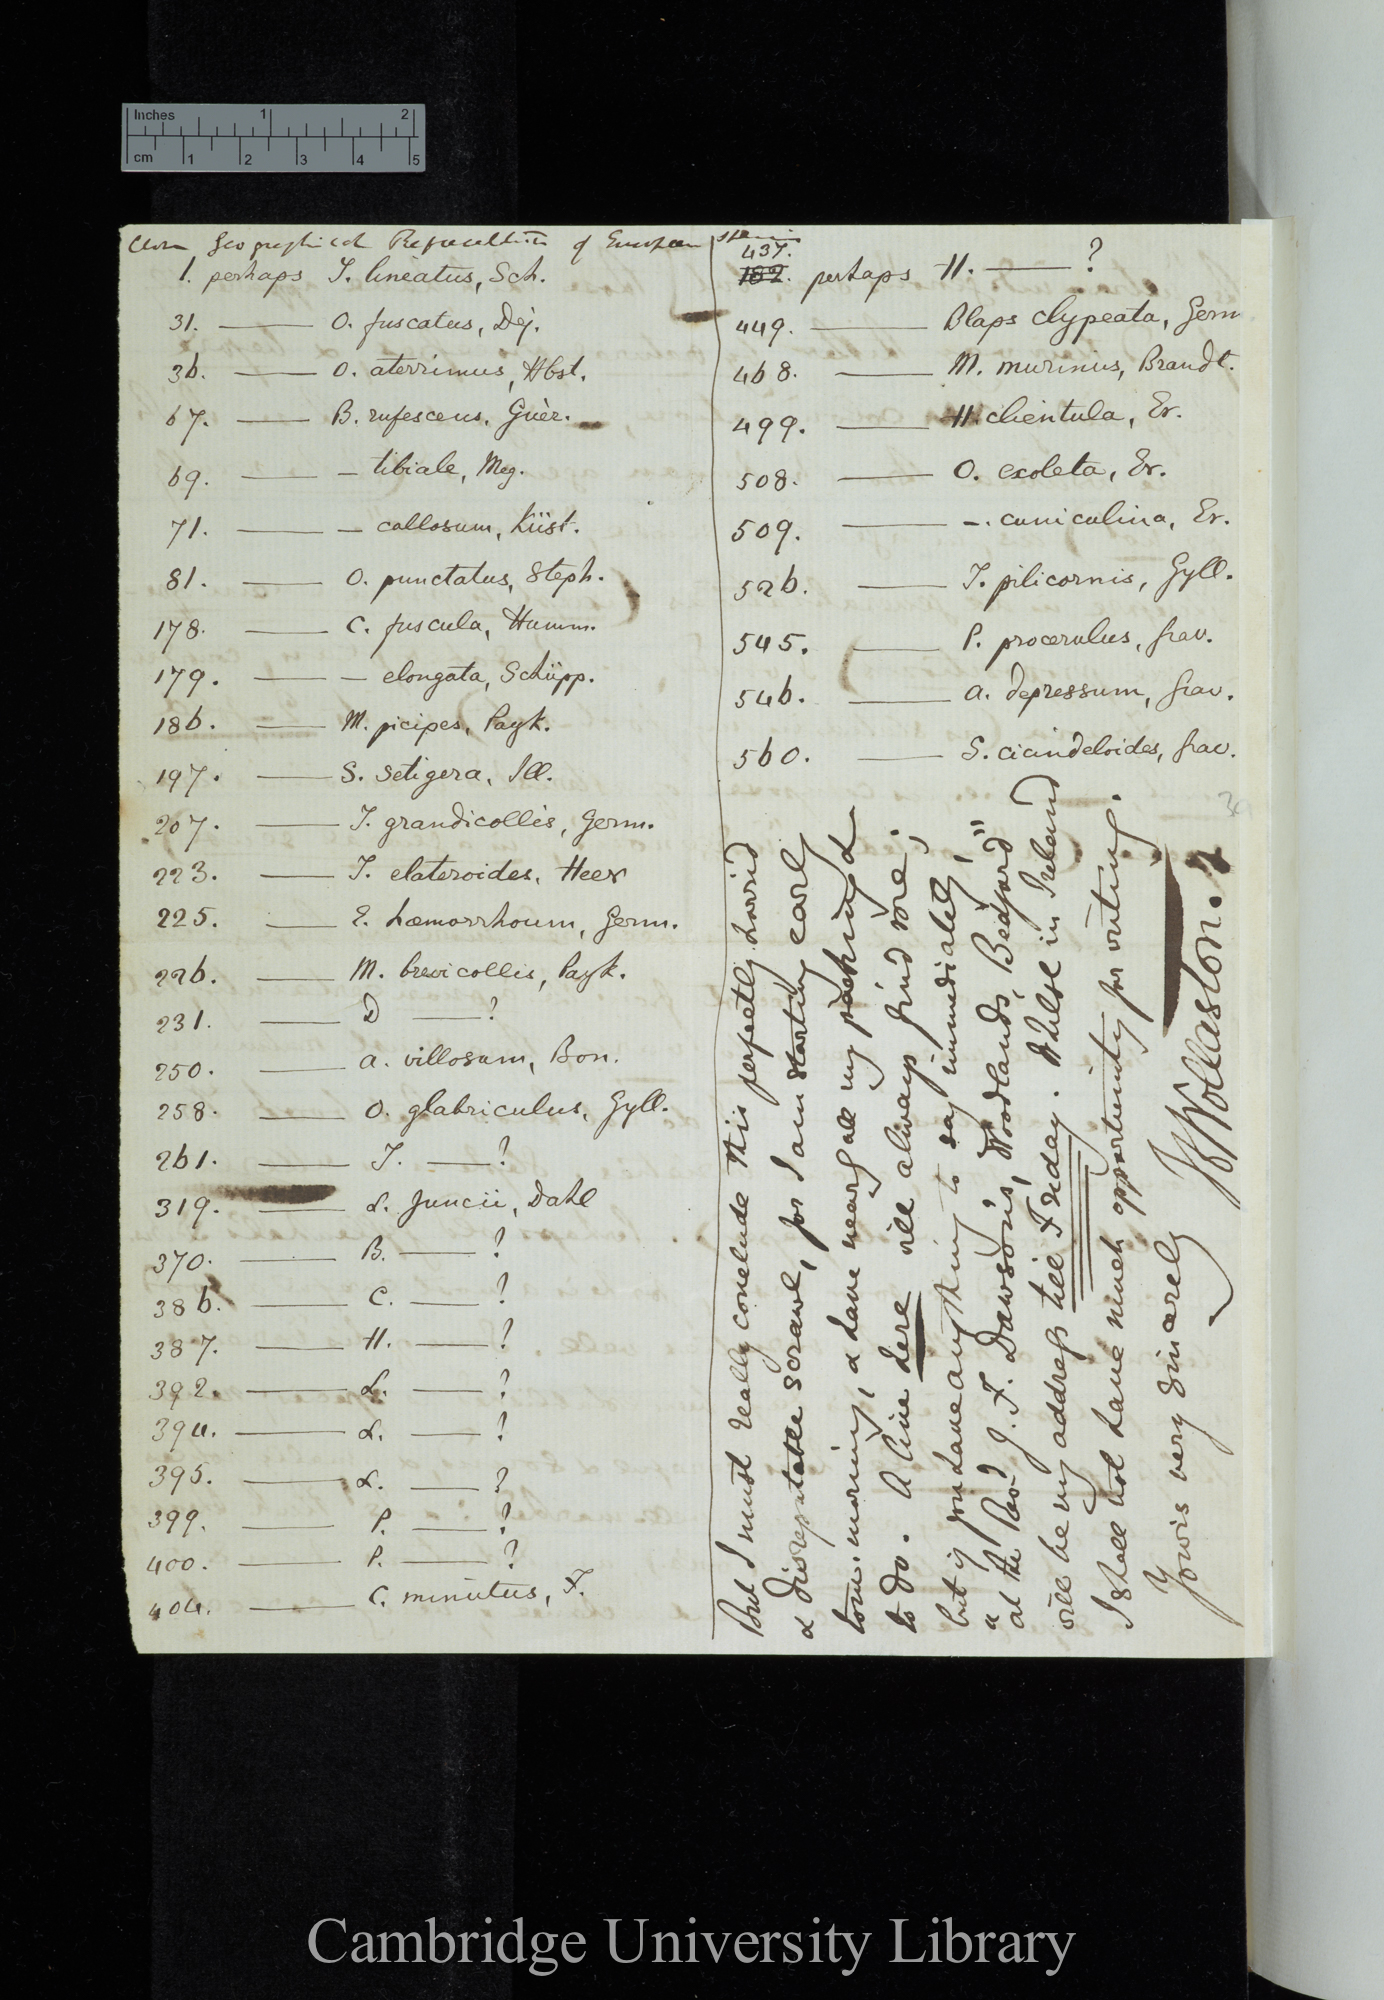 Inches 1 2
cm 1 2 3 4 5
Close Geographical Representatives of European species
1. perhaps T. lineatus, Sch.
31. —— O. fuscatus, Dej.
36. —— O. aterrimus, Hbst.
67. —— B. rufescens, Guèr.
69. —— – tibiale, Meg.
71. —— – callosum, Küst.
81. —— O. punctatus, Steph.
178. —— C. fuscula, Humm.
179. —— – elongata, Schüpp.
186. —— M. picipes, Payk.
197. —— S. setigera, Ill.
207. —— T. grandicollis, Germ.
223. —— T. elateroides, Heer
225. —— E. hæmorrhoum, Germ.
226. —— M. brevicollis, Payk.
231. —— D —— ?
250. —— A. villosum, Bon.
258. —— O. glabriculus, Gyll.
261. —— T. —— ?
319. —— L. juncii, Dahl
370. —— B. —— ?
386. —— C. —— ?
387. —— H. —— ?
392. —— L. —— ?
394. —— L. —— ?
395. —— L. —— ?
399. —— P. —— ?
400. —— P. —— ?
404. —— C. minutus, F.
437.
182. perhaps H. —— ?
449. —— Blaps clypeata, Germ
468. —— M. murinus, Brandt.
499. —— H. clientula, Er.
508. —— O. exoleta, Er.
509. —— –. cuniculina, Er.
526. —— T. pilicornis, Gyll.
545. —— P. procerulus, Grav.
546. —— A. depressum, Grav.
560. —— S. cicindeloides, Grav.
But I must really conclude this perfectly horrid
& disreputable scrawl, for I am starting early
tom. morning, & have nearly all my packing
to do. A line here will always find me;
but if you have anything to say immediately,
"at the Revd J. F. Dawson's, Woodlands, Bedford"
will be my address till Friday. Whilst in Ireland
I shall not have much opportunity for writing.
Yours very sincerely
T V Wollaston.
Cambridge University Library